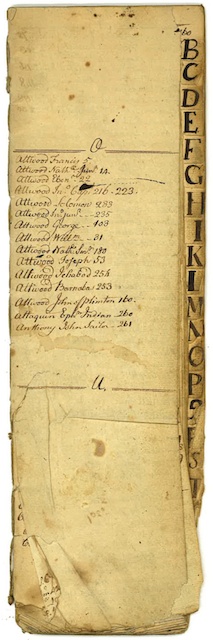 O
Attwood Francis 5
Attwood Nath.ll Junr 14
Attwood Ebenr 22
Attwood 216. 223.
Attwood Solomon 232
Attwood 235
Attwood George 408
Attwood Willm 31
Attwood Nathl 180
Attwood Joseph 53
Attwood Ichabod 254
Attwood Barnaba 253
Attwood John of Plimton 160.
Attaquin Ephm Indian 260
Anthony John Sailor 261
U.
B
C
D
E
F
G
H
I
K
L
M
N
O
P
S